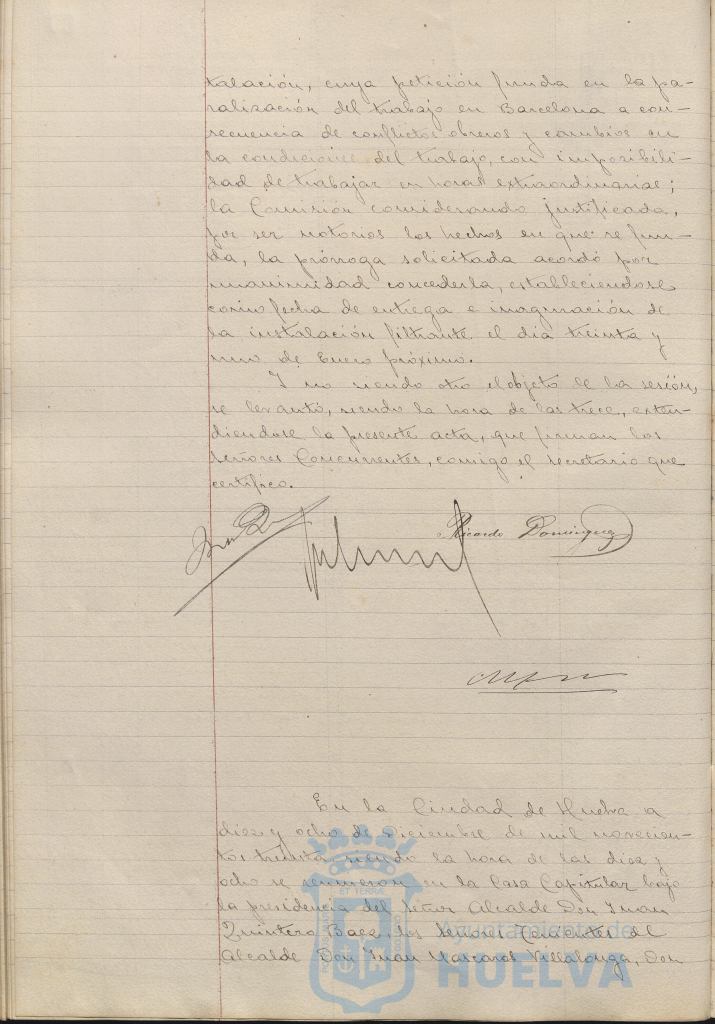 talación, cuya petición funda en la pa-
ralización del trabajo en Barcelona a con-
secuencia de conflictos obreros y cambios en
la condiciones del trabajo, con imposibili-
dad de trabajar en horas extraordinarias;
la Comisión considerando justificada,
por ser notorios los hechos en que se fun-
da, la prórroga solicitada acordó por
unanimidad concederla, estableciendose
como fecha de entrega e inaguración de
la instalación filtrante el día treinta y
uno de Enero próximo.
Y no siendo otro el objeto de la sesión,
se levantó, siendo la hora de las trece, exten-
diendose la presente acta, que firman los
señores Concurrentes, conmigo el secretario que
certifico.
Ricardo Dominguez
En la Ciudad de Huelva a
diez y ocho de Diciembre de mil novecien-
tos treinta, siendo la hora de las diez y
ocho se reunieron en la Casa Capitular bajo
la presidencia del Señor Alcalde Don Juan
Quintero Baez, los señores Tenientes de
Alcalde Don Juan Mascaros Villalonga, Don
Ayuntamiento de
HUELVA